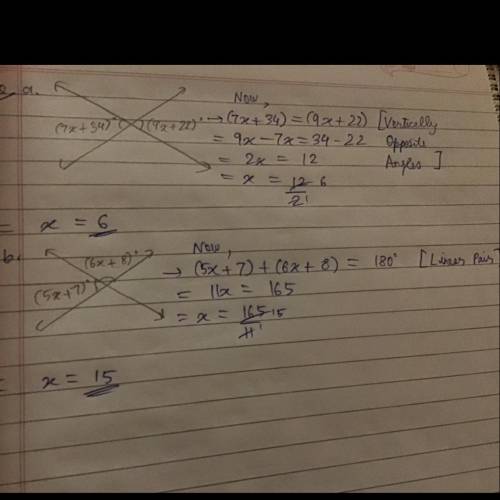 a.
(7x+34)° (9x+22)°
Now,
→ (7x+34) = (9x+22) [Vertically
= 9x-7x = 34-22 Opposite
= 2x = 12 Angles]
= x = 12 6
2 1
= x = 6
b.
(6x+8)°
(5x+7)°
Now,
→ (5x+7)+(6x+8) = 180° [Linear Pair
= 11x = 165
= x = 165 15
11 1
= x = 15